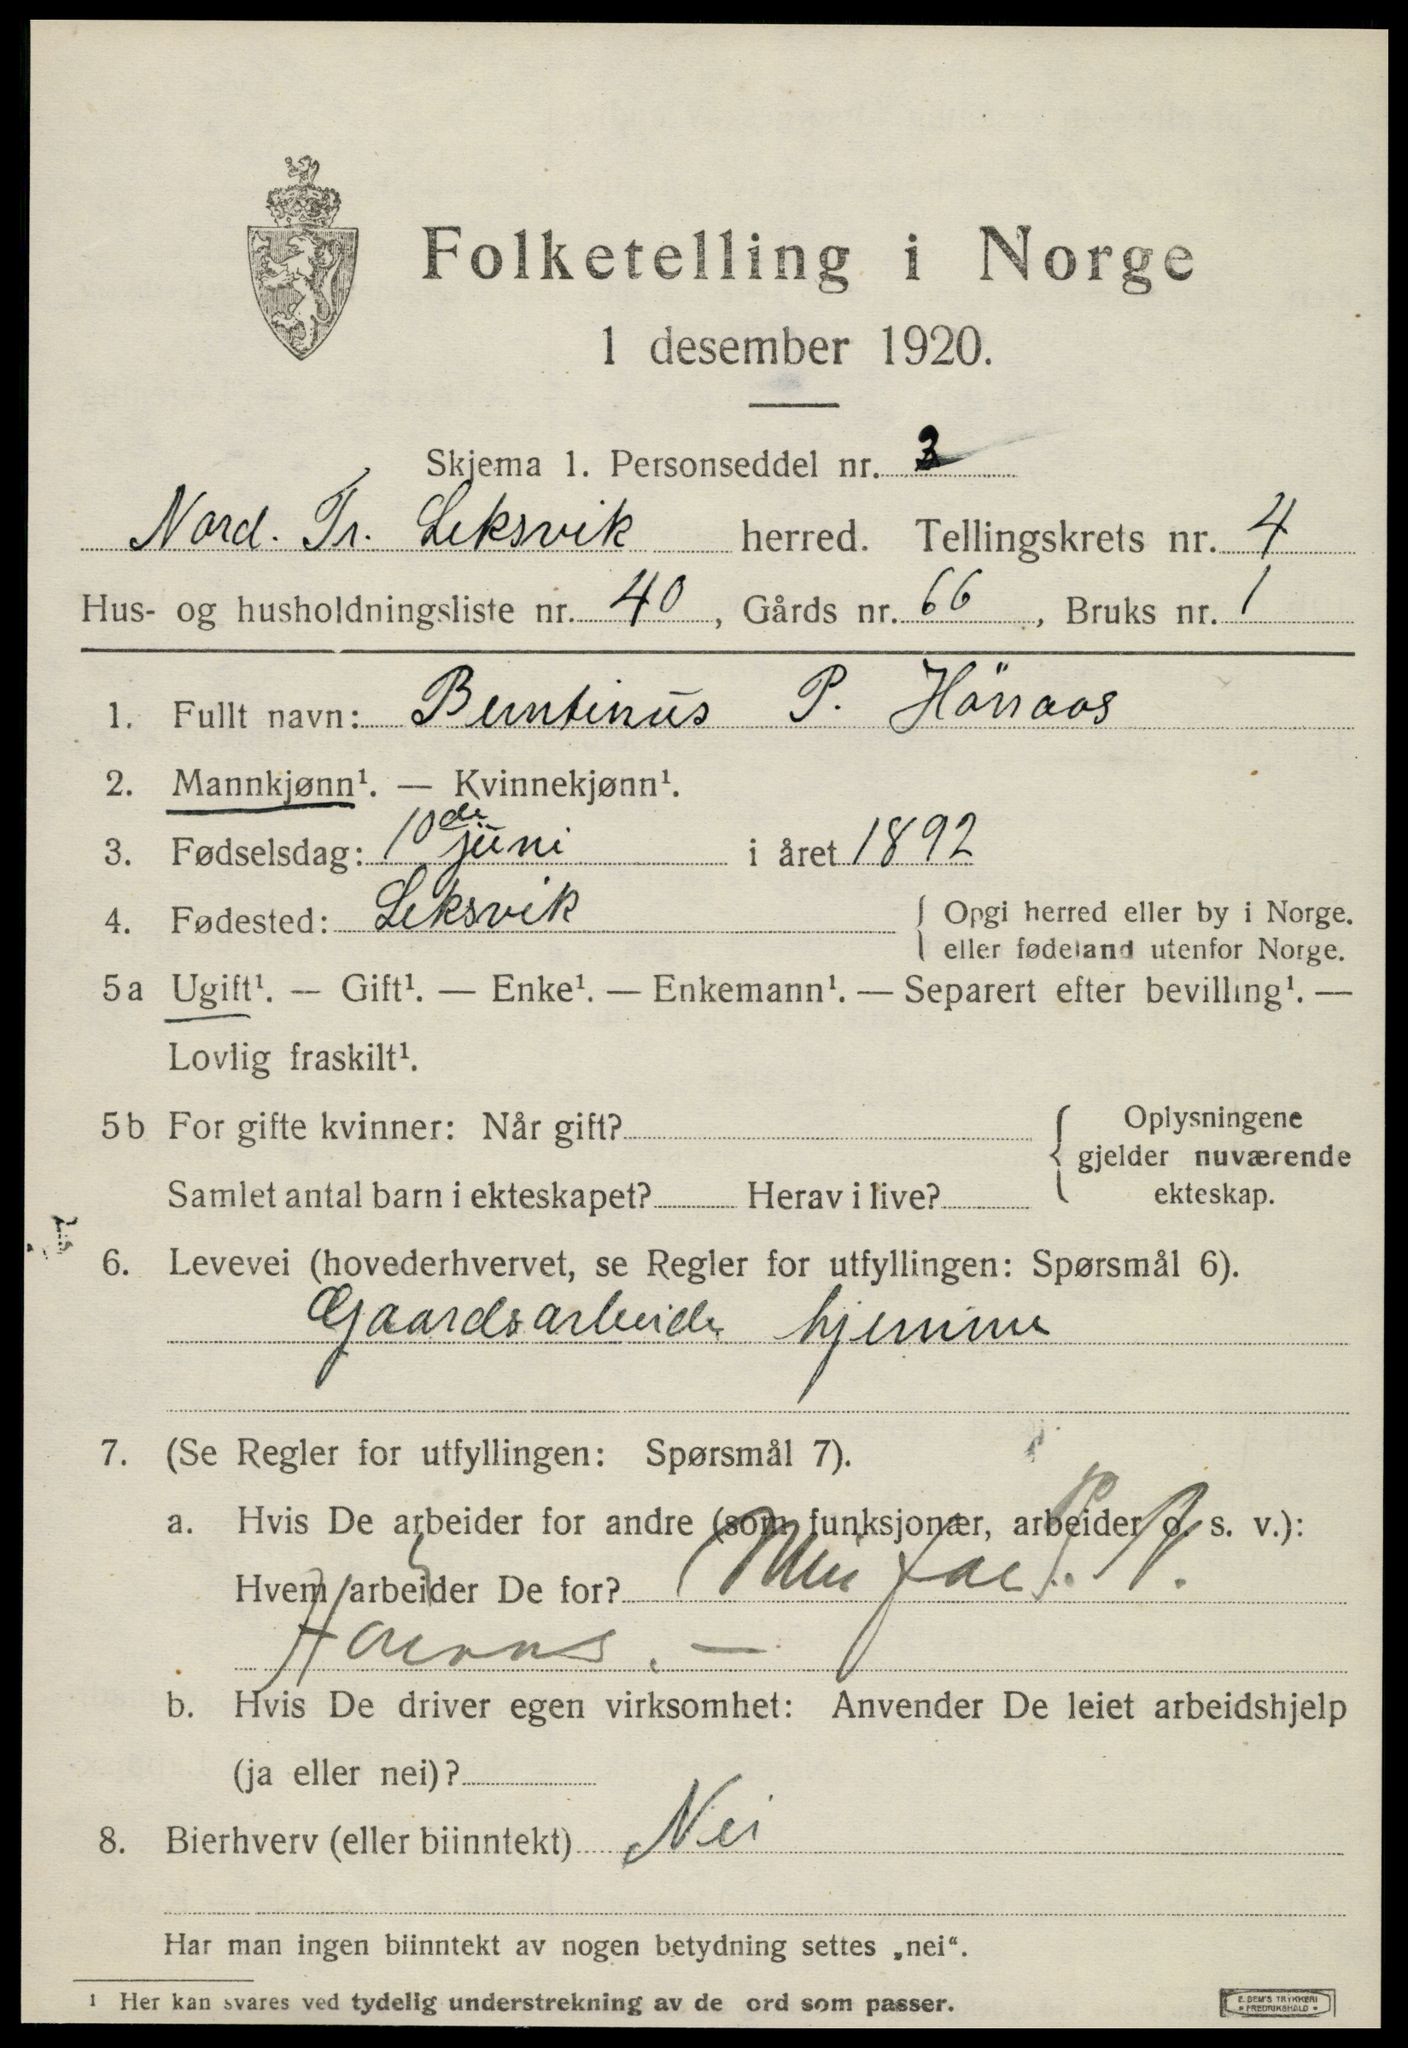 Folketelling i Norge
1 desember 1920.
Skjema 1. Personseddel nr. 3
Nord. Tr. Leksvik herred. Tellingskrets nr. 4
Hus- og husholdningsliste nr. 40, Gårds nr. 66, Bruks nr. 1
1. Fullt navn: Berntinus P. Hörraas
2. Mannkjønn¹. — Kvinnekjønn¹.
3. Fødselsdag: 10de juni i året 1892
4. Fødested: Leksvik { Opgi herred eller by i Norge.
eller fødeland utenfor Norge.
5a Ugift¹. — Gift¹. — Enke¹. — Enkemann¹. — Separert efter bevilling¹. —
Lovlig fraskilt¹.
5b For gifte kvinner: Når gift?
Samlet antal barn i ekteskapet? Herav i live?
Oplysningene
gjelder nuværende
ekteskap.
6. Levevei (hovederhvervet, se Regler for utfyllingen: Spørsmål 6).
Gaardsarbeide hjemme
7. (Se Regler for utfyllingen: Spørsmål 7).
a. Hvis De arbeider for andre (som funksjonær, arbeider o. s. v.):
Hvem arbeider De for? Min far P. N.
b. Hvis De driver egen virksomhet: Anvender De leiet arbeidshjelp
(ja eller nei)?
8. Bierhverv (eller biinntekt) Nei
Har man ingen biinntekt av nogen betydning settes „nei“.
¹ Her kan svares ved tydelig understrekning av de ord som passer.
E. SEM'S TRYKKERI
FREDRIKSHALD